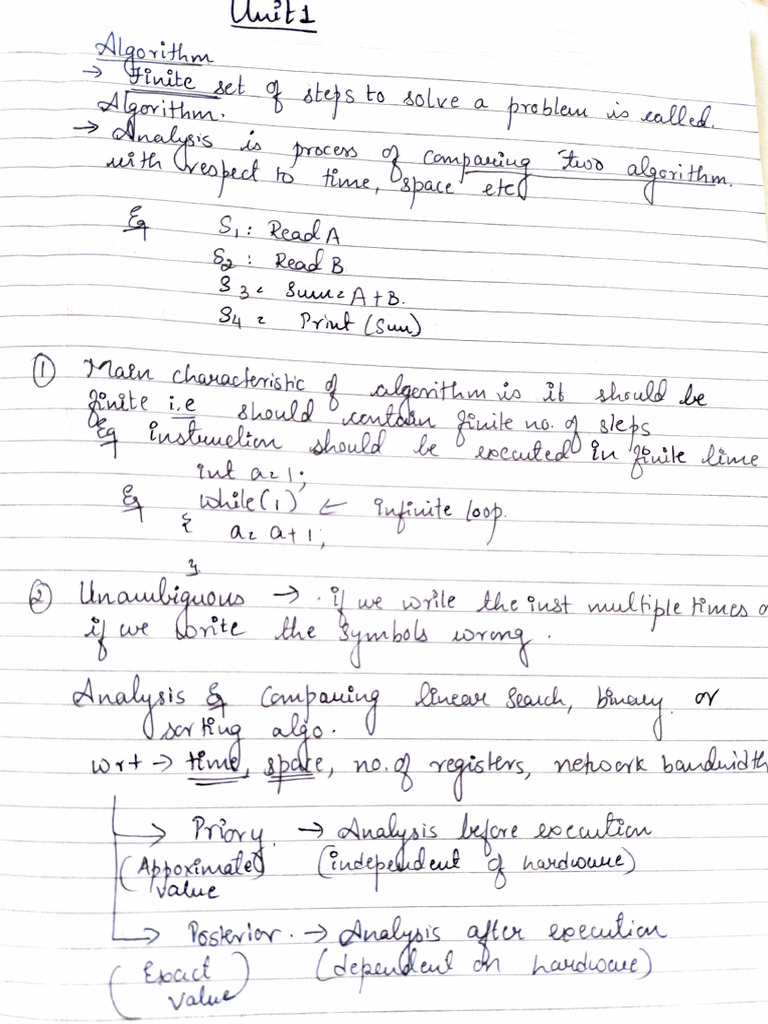 Unit 1
Algorithm
→ Finite set of steps to solve a problem is called.
Algorithm.
→ Analysis is process of comparing two algorithm.
with respect to time, space etc
Eg S1 : Read A
S2 : Read B
S3 = Sum = A+B.
S4 = Print (Sum)
① Main characteristic of algorithm is it should be
finite i.e should contain finite no. of steps
Eg instruction should be executed in finite time
int a=1;
Eg while(1) ← infinite loop.
{ a = a+1;
}
② Unambiguous → . if we write the inst multiple times
if we write the symbols wrong.
Analysis Eg Comparing linear search, binary or
sorting algo.
wrt → time, space, no. of registers, network bandwidth
→ Priory. → Analysis before execution
(Appoximated value (independent of hardware)
→ Posterior. → Analysis after execution
(Exact value) (dependent on hardware)